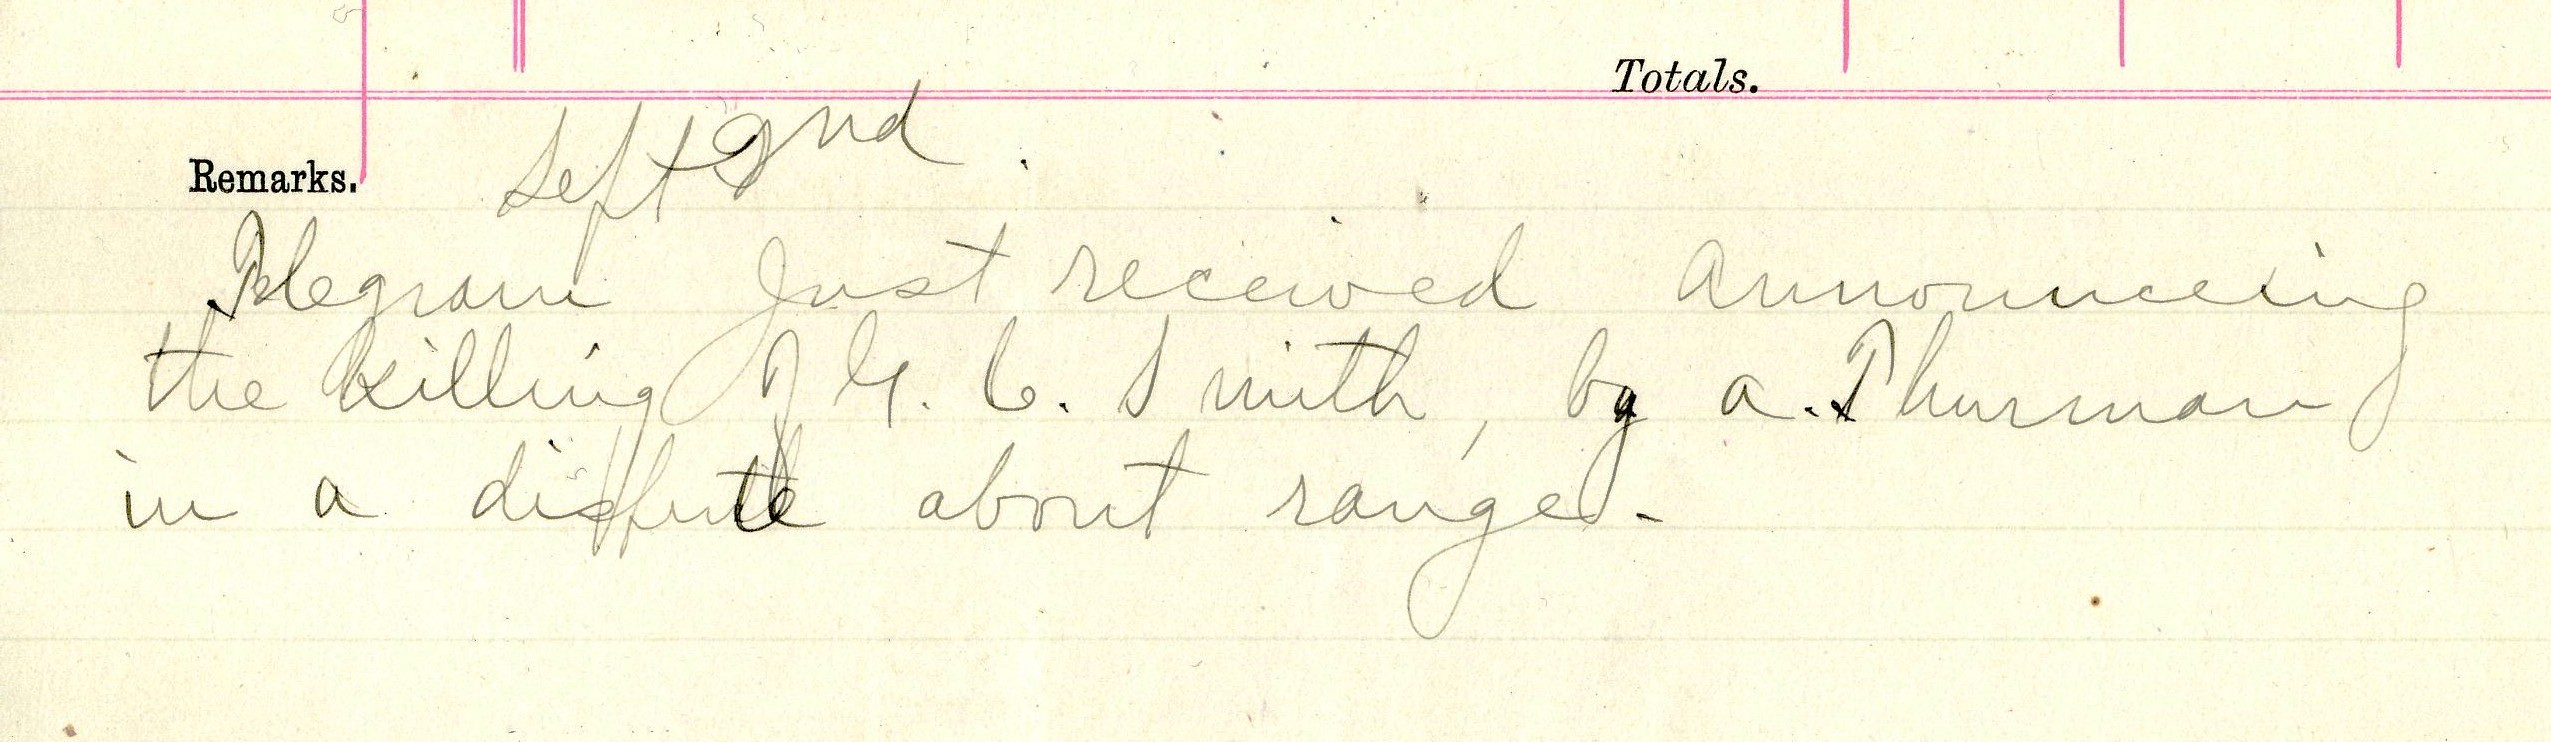 Totals.
Remarks. Sept 2nd.
Telegram Just received Announceing
the killing of G. C. Smith, by A. Thurman
in a dispute about range.